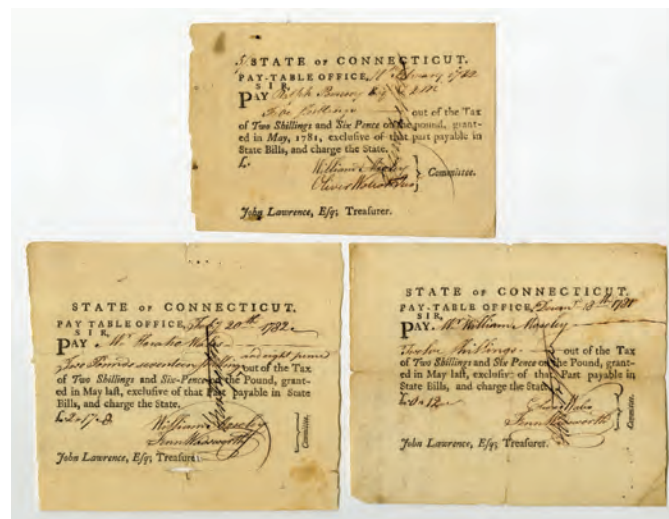 STATE OF CONNECTICUT.
PAY-TABLE OFFICE, 1782
SIR,
PAY Ralph Esq
out of the Tax
of Two Shillings and Six Pence on the pound, grant-
ed in May, 1781, exclusive of that part payable in
State Bills, and charge the State.
£.
William Moseley
Oliver Wolcott Committee.
John Lawrence, Esq; Treasurer.
STATE OF CONNECTICUT.
PAY TABLE OFFICE, 20th 1782
SIR,
PAY Mr Horatio Wales
and eight pence
Two Pounds seventeen shillings out of the Tax
of Two Shillings and Six-Pence on the Pound, grant-
ed in May last, exclusive of that Part payable in State
Bills, and charge the State.
£2 17 8
William Moseley
Fenn Wadsworth
Committee.
John Lawrence, Esq; Treasurer.
STATE OF CONNECTICUT.
PAY-TABLE OFFICE, 1781
SIR,
PAY Mr William Moseley
Twelve Shillings out of the Tax
of Two Shillings and Six Pence on the Pound, grant-
ed in May last, exclusive of that Part payable in
State Bills, and charge the State.
£0 12
Fenn Wadsworth
Committee.
John Lawrence, Esq; Treasurer.